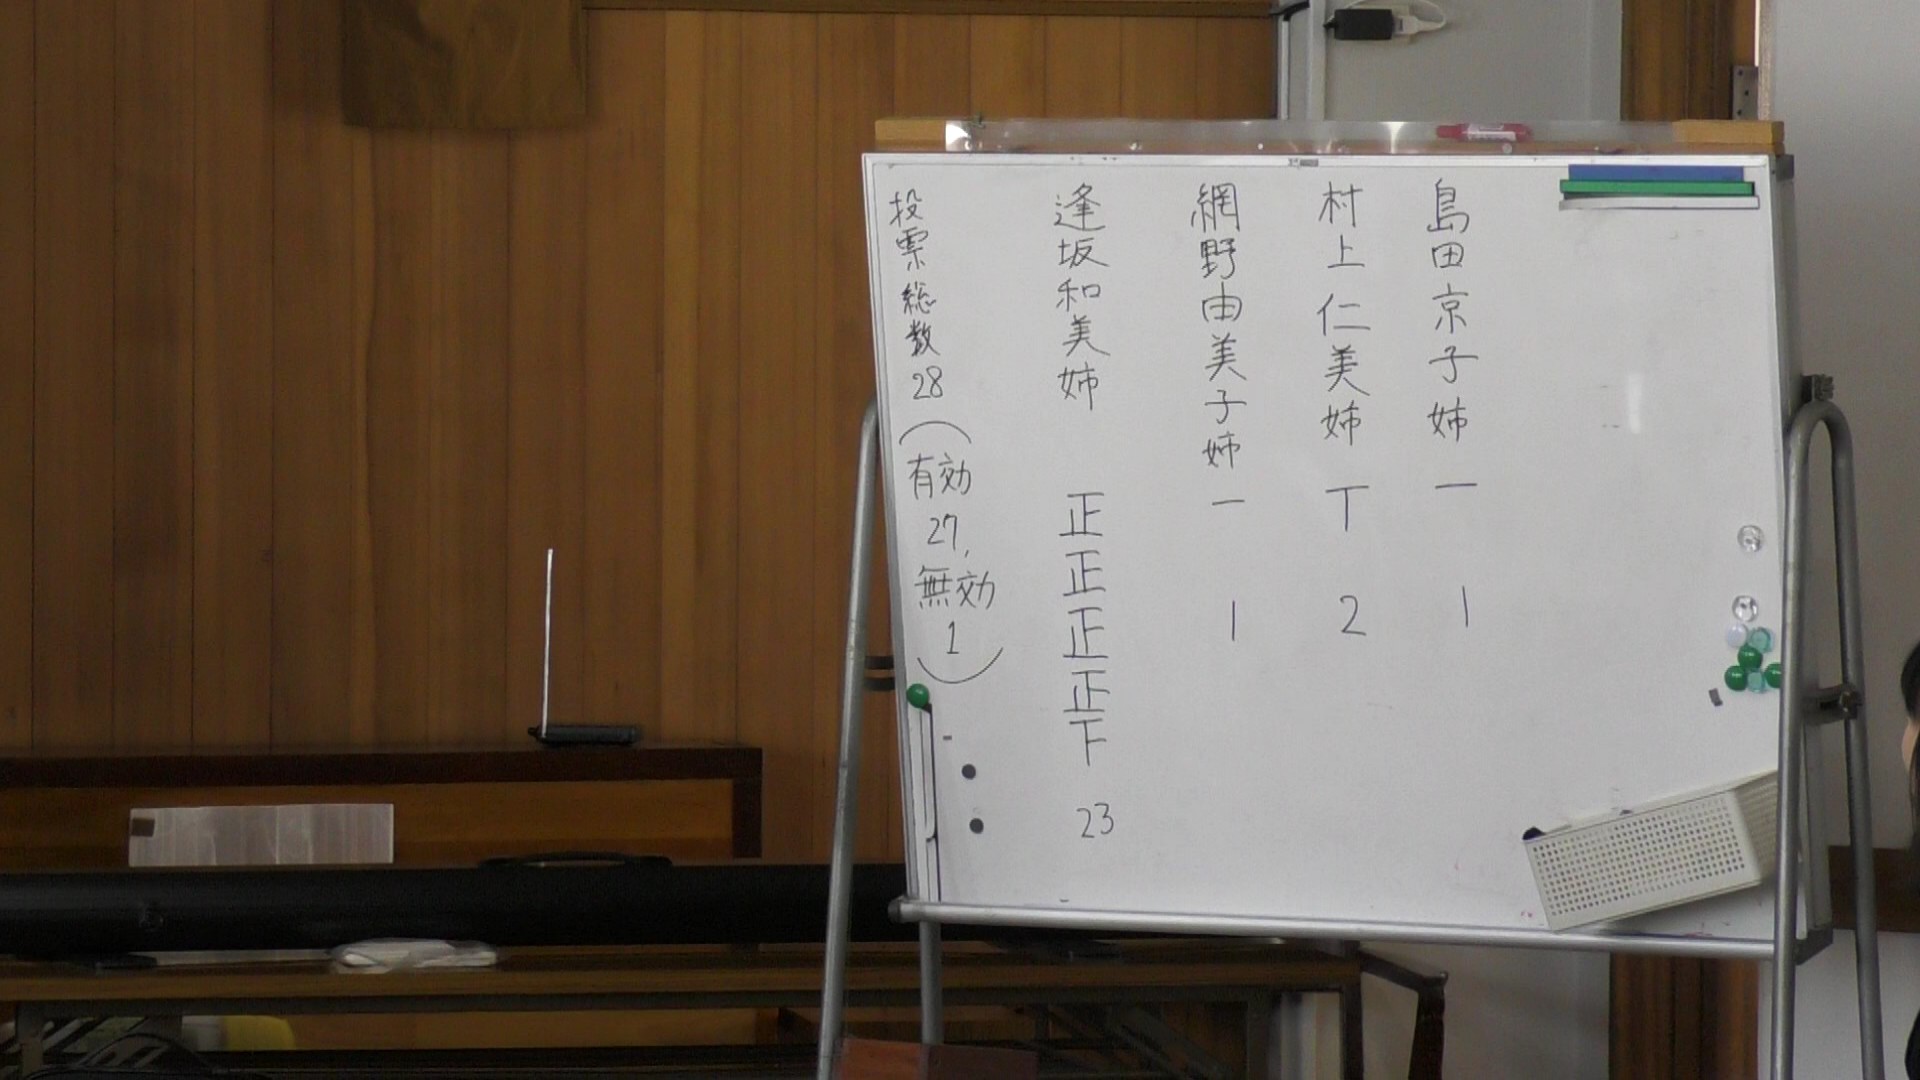 島田京子姉 一 1
村上仁美姉 丅 2
網野由美子姉 一 1
逢坂和美姉 正正正正下 23
投票総数28(有効27,無効1)